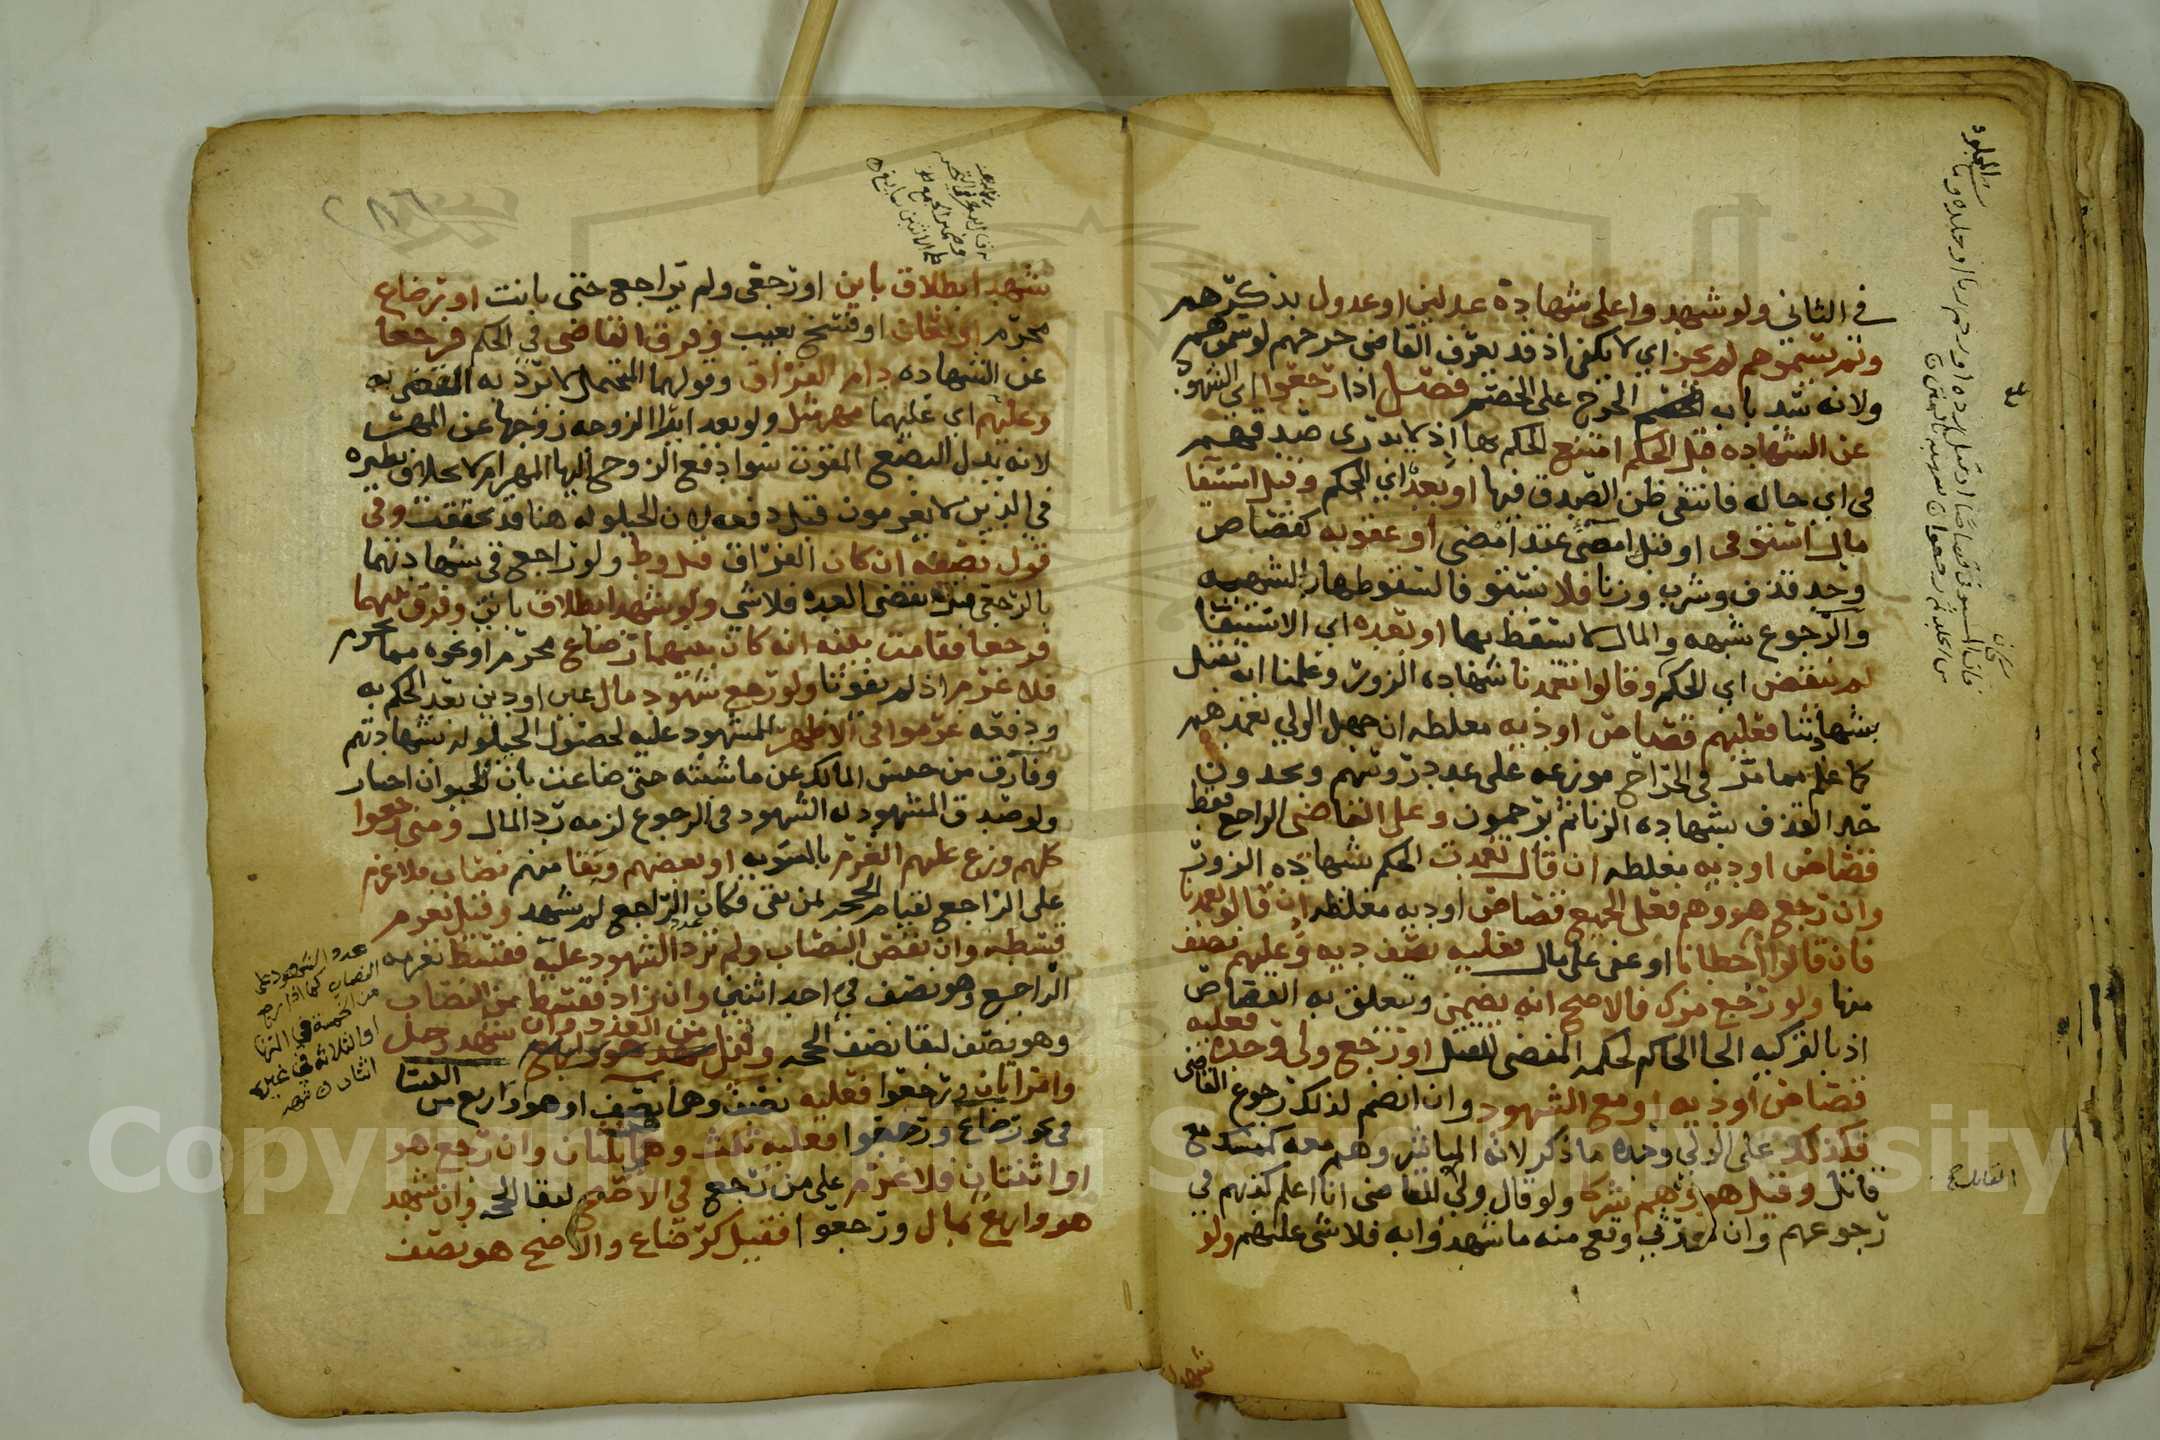 في الثاني ولو شهدوا على شهادة عدلين او عدول يذكرهم
ولم يسموهم لم يجز اي لا يكفي اذ قد يعرف القاضي جرحهم لو سموهم
ولانه سد باب الجرح على الخصم فصل اذا رجعوا اي الشهود
عن الشهاده قبل الحكم امتنع الحكم بها اذ لا يدري صدقهم
في اي حاله فانتفى ظن الصدق فيها او بعده اي الحكم وقبل استيفا
مال استوفي او قبل امضى عقد امضي او عقوبه كقصاص
وحد قذف وشرب وزنا فلا تستوفا لسقوطها بالشبهه
والرجوع شبهه والمال لا يسقط بها او بعده اي الاستيفا
لم ينقض اي الحكم وقالوا تعمدنا شهاده الزور وعلمنا انه يقتل
بشهادتنا فعليهم قصاص او ديه مغلظه ان جهل الولي تعمدهم
كما علم مما مر في الجراح موزعه على عدد روسهم ويحدون
حد القذف بشهاده الزنا ثم يرجمون وعلى القاضي الراجع فقط
قصاص او ديه مغلظه ان قال تعمدت الحكم بشهاده الزور
وان رجع هو وهم فعلى الجميع قصاص او ديه مغلظه ان قالوا تعمدنا
فان قالوا اخطانا او عفي على مال فعليه نصف ديه وعليهم نصف
منها ولو رجع مزك فالاصح انه يضمن ويتعلق به القصاص
اذ بالتزكيه الجا الحاكم لحكمه المفضي للقتل او رجع ولي وحده فعليه
قصاص او ديه او مع الشهود وان انضم لذلك رجوع القاضي
فكذلك على الولي وحده ما ذكر لانه المباشر وهم معه كممسك مع
قاتل وقيل هو وهم شركا ولو قال ولي للقاضي انا اعلم كذبهم في
رجوعهم وان مورثي وقع منه ما شهدوا به فلا شي عليهم ولو
القاتل صح
شهد
شهدا بطلاق باين او رجعي ولم يراجع حتى بانت او رضاع
محرم او لعان او فسخ بعيب وفرق القاضي في الحكم فرجعا
عن الشهاده دام الفراق وقولهما المحتمل لا يرد به القضى به
وعليهم اي عليهما مهر مثل ولو بعد ابرا الزوجه زوجها عن المهر
لانه بدل البضع المفوت سوا دفع الزوج اليها المهر ام لا بخلاف نظيره
في الدين لا يغرمون قبل دفعه لان الحيلوله هنا قد تحققت وفي
قول نصفه ان كان الفراق قبل وط ولو راجع في شهادتهما
بالرجعي قبل تقضي العده فلا شي ولو شهدا بطلاق باين وفرق بينهما
فرجعا فقامت بينه انه كان بينهما رضاع محرم او نحوه مما يحرم
فلا غرم اذ لم يفوتا ولو رجع شهود مال عين او دين بعد الحكم به
ودفعه غرموا في الاظهر للمشهود عليه لحصول الحيلوله بشهادتهم
وفارق من حبس المالك عن ماشيته حتى ضاعت بان الحيوان
ولو صدق المشهود له الشهود في الرجوع لزمه رد المال ومتى رجعوا
كلهم وزع عليهم الغرم بالسويه او بعضهم وبقا منهم نصاب فلا غرم
على الراجع لقيام الحجه لمن بقى فكان الراجع لم يشهد وقيل يغرم
قسطه وان نقص النصاب ولم يزد الشهود عليه فقسط يغرمه
الراجع وهو نصف في احد اثنين وان زاد فقسط من النصاب
وهو نصف لبقا نصف الحجه وقيل من العدد وان شهد رجل
وامراتان ورجعوا فعليه نصف وهما نصف او هو واربع من النسا
في نحو رضاع ورجعوا فعليه ثلث وهما ثلثان وان رجع هو
او اثنتان فلا غرم على من رجع في الاصح لبقا الحجه وان شهد
هو واربع بمال ورجعوا فقيل كرضاع والاصح هو نصف
عدد الشهود على
النصاب كما اذا رجع
من الخمسه في الزنا
او الثلاثه في غيره
اثنان